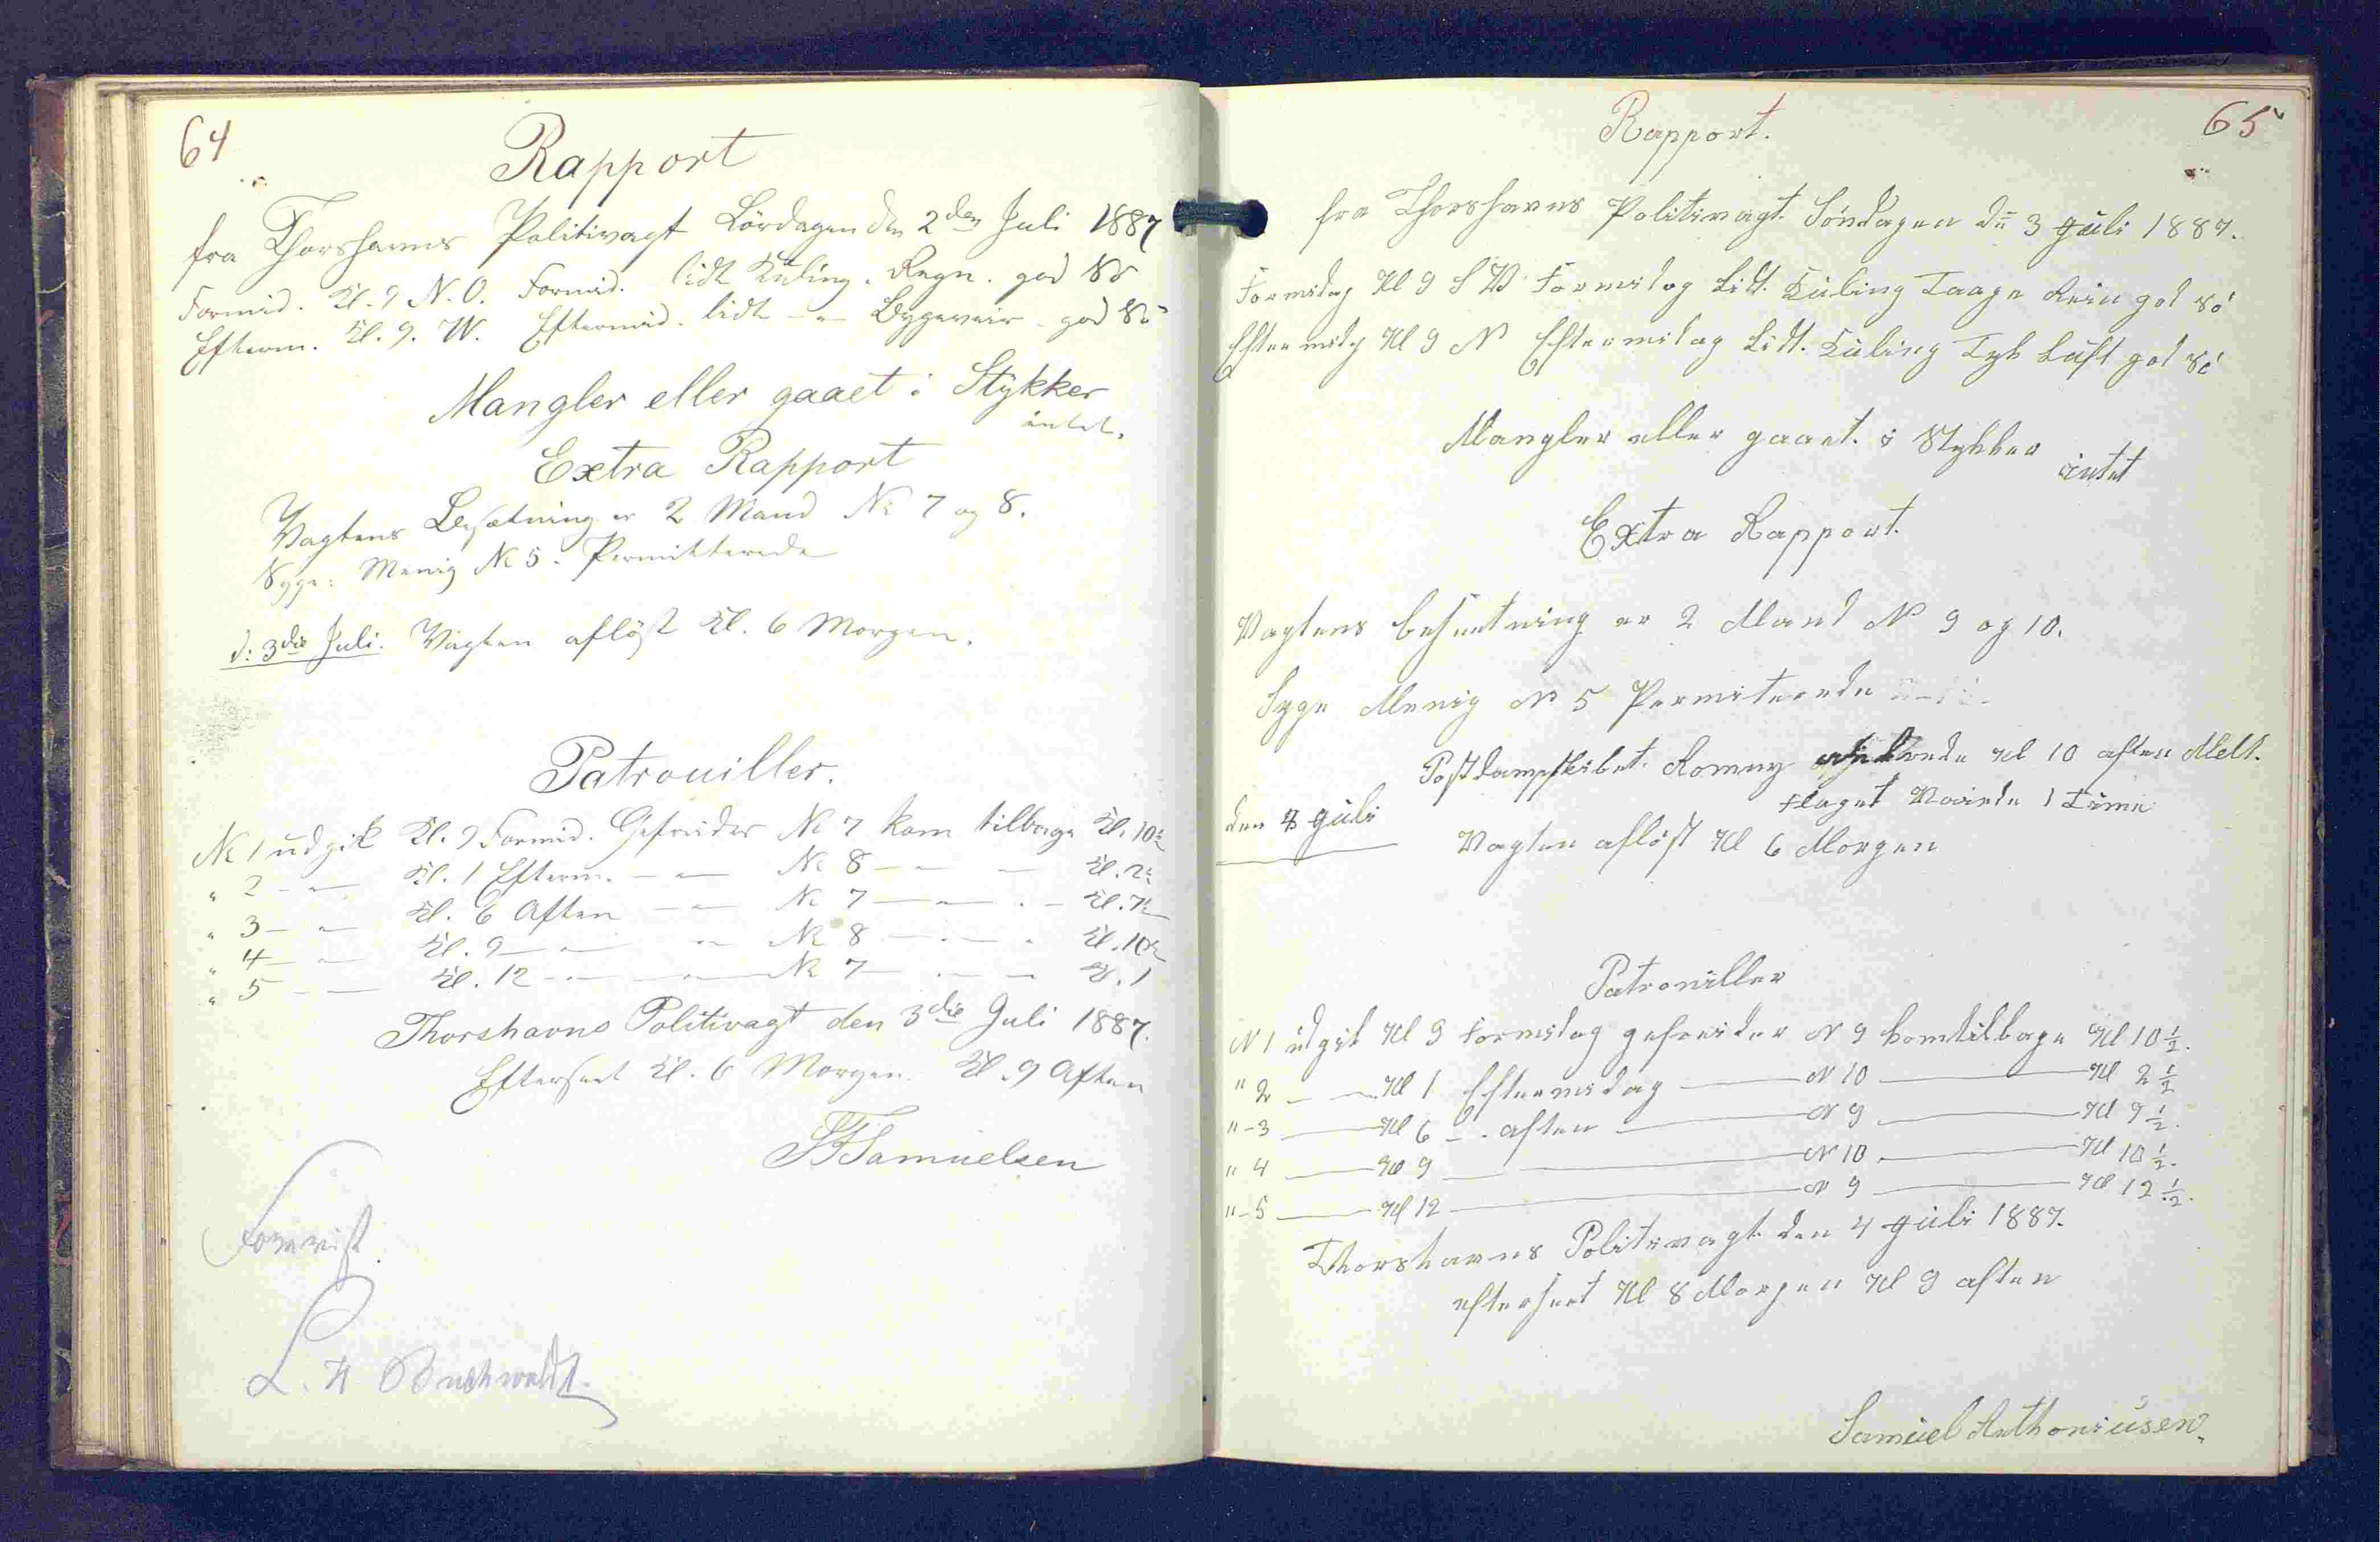 64
Rapport
fra Thorshavns Politivagt Lördagen den 2den Juli 1887
Formid. Kl. 9 N.O. Formid. lidt Kuling. Regn. god Sö
Efterm. Kl. 9. W. Eftermid. lidt -"- Bygeveir - god Sö
Mangler eller gaaet i Stykker
intet.
Extra Rapport
Vagtens Besætning er 2 Mand No 7 og 8.
Syge: Menig No 5. Permitterede
d: 3die Juli. Vagten aflöst Kl. 6 Morgen.
Patrouiller.
No 1 udgik Kl. 9 Formid. Gefreider No 7 kom tilbage Kl. 10½
" 2 - " - Kl. 1 Efterm. - " - No 8 - " - Kl. 2½
" 3 - " - Kl. 6 Aften - " - No 7 - " - Kl. 7½
" 4 - " - Kl. 9 - " - " - No 8 - " - Kl. 10½
" 5 - " - Kl. 12 - " - " - No 7 - " - Kl. 1
Thorshavns Politivagt den 3die Juli 1887.
Efterseet Kl. 6 Morgen Kl. 9 Aften
Samuelsen
Forevist.
L. H. Buchwaldt.
65
Rapport.
fra Thorshavns Politivagt. Söndagen dn 3 Juli 1887.
Formidag Kl 9 S V Formidag Lidt. Kuling Taage Rein god Sö
Eftermidg Kl 9 N Eftermidag Lidt. Kuling Tyk Luft god Sö
Mangler eller gaaet. i Stykker
intet
Extra Rapport.
Vagtens besætning er 2 Mand N 9 og 10.
Syge Menig N 5 Permiterede
Postdampskibet. Romny Kl 10 aften Melt.
Flaget Vaiede 1 Time
den 4 Juli
Vagten aflöst Kl 6 Morgen
Patrouiller
N 1 udgik Kl 9 Formidag gefreider N 9 komtilbage Kl 10 ½.
" 2 - - Kl 1 Eftermidag - N 10 - Kl 2 ½
" - 3 - Kl 6 - - aften - N 9 - Kl 9 ½.
" 4 - Kl 9 - N 10 - Kl 10 ½.
" - 5 - Kl 12 - N 9 - Kl 12 ½.
Thorshavns Politivagt. den 4 Juli 1887.
efterseet Kl 8 Morgen Kl 9 aften
Samuel Anthoniusen.